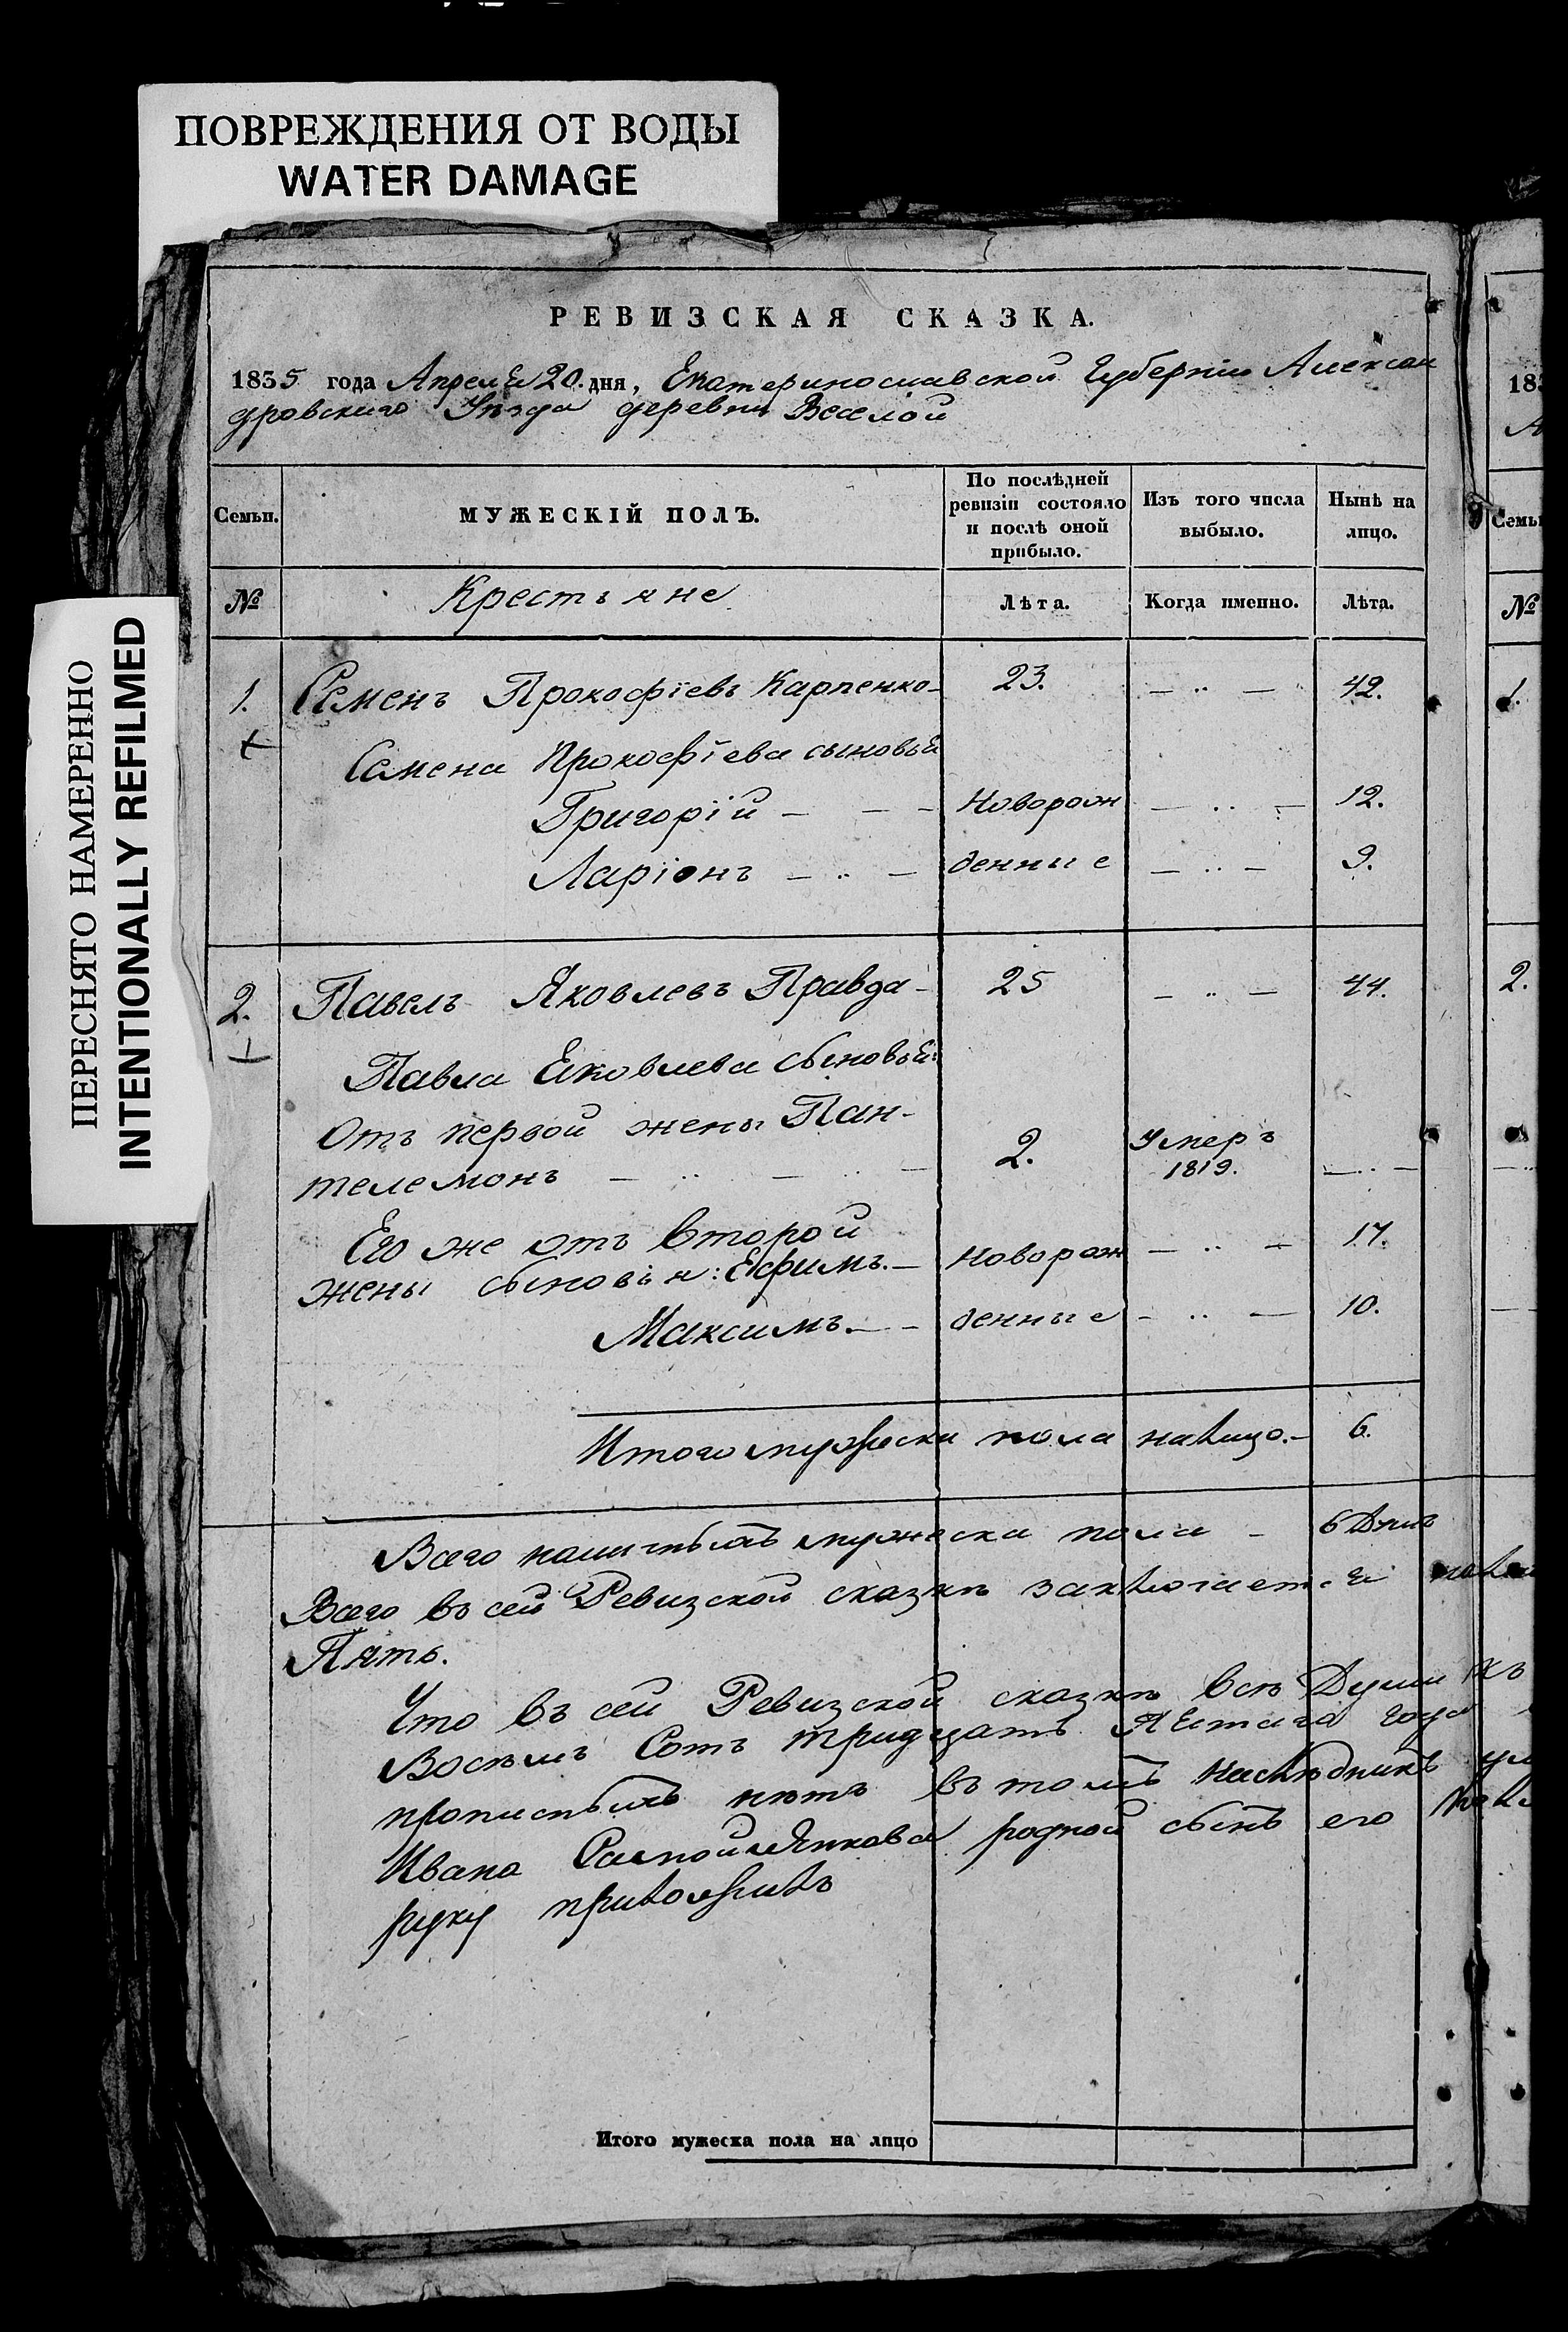 ПОВРЕЖДЕНИЯ ОТ ВОДЫ
WATER DAMAGE
ПЕРЕСНЯТО НАМЕРЕННО
INTENTIONALLY REFILMED
РЕВИЗСКАЯ СКАЗКА.
1835 года Апреля 20. дня, Екатеринославской Губернiи Алексан
дровскаго Уѣзда деревни Веселой
Семьи. МУЖЕСКІЙ ПОЛЪ. По послѣдней ревизіи состояло и послѣ оной прибыло. Изъ того числа выбыло. Нынѣ на лицо.
№ Крестьяне Лѣта. Когда именно. Лѣта.
1. Семенъ Прокофіевъ Карпенко 23. 42.
Семена Прокофіева сыновья
Григорій Новорож 12.
Ларіонъ денные 9.
2. Павелъ Яковлевъ Правда 25 44.
Павла Яковлева сыновья:
Отъ первой жены Пан-
телемонъ 2. Умеръ 1819.
Его же отъ второй
жены сыновья: Ефимъ. новорож 17.
Максимъ. денные 10.
Итого мужеска пола налицо. 6.
Всего мужеска пола 6
Всего въ сей Ревизской сказкѣ заключается
Пять.
Что въ сей Ревизской сказкѣ всѣ Души къ
Восемъ Сотъ тридцать года
нѣтъ въ томъ наслѣдникъ
Ивана родной сынъ его
руку приложилъ
Итого мужеска пола на лицо
18
Семьи
№
1.
2.